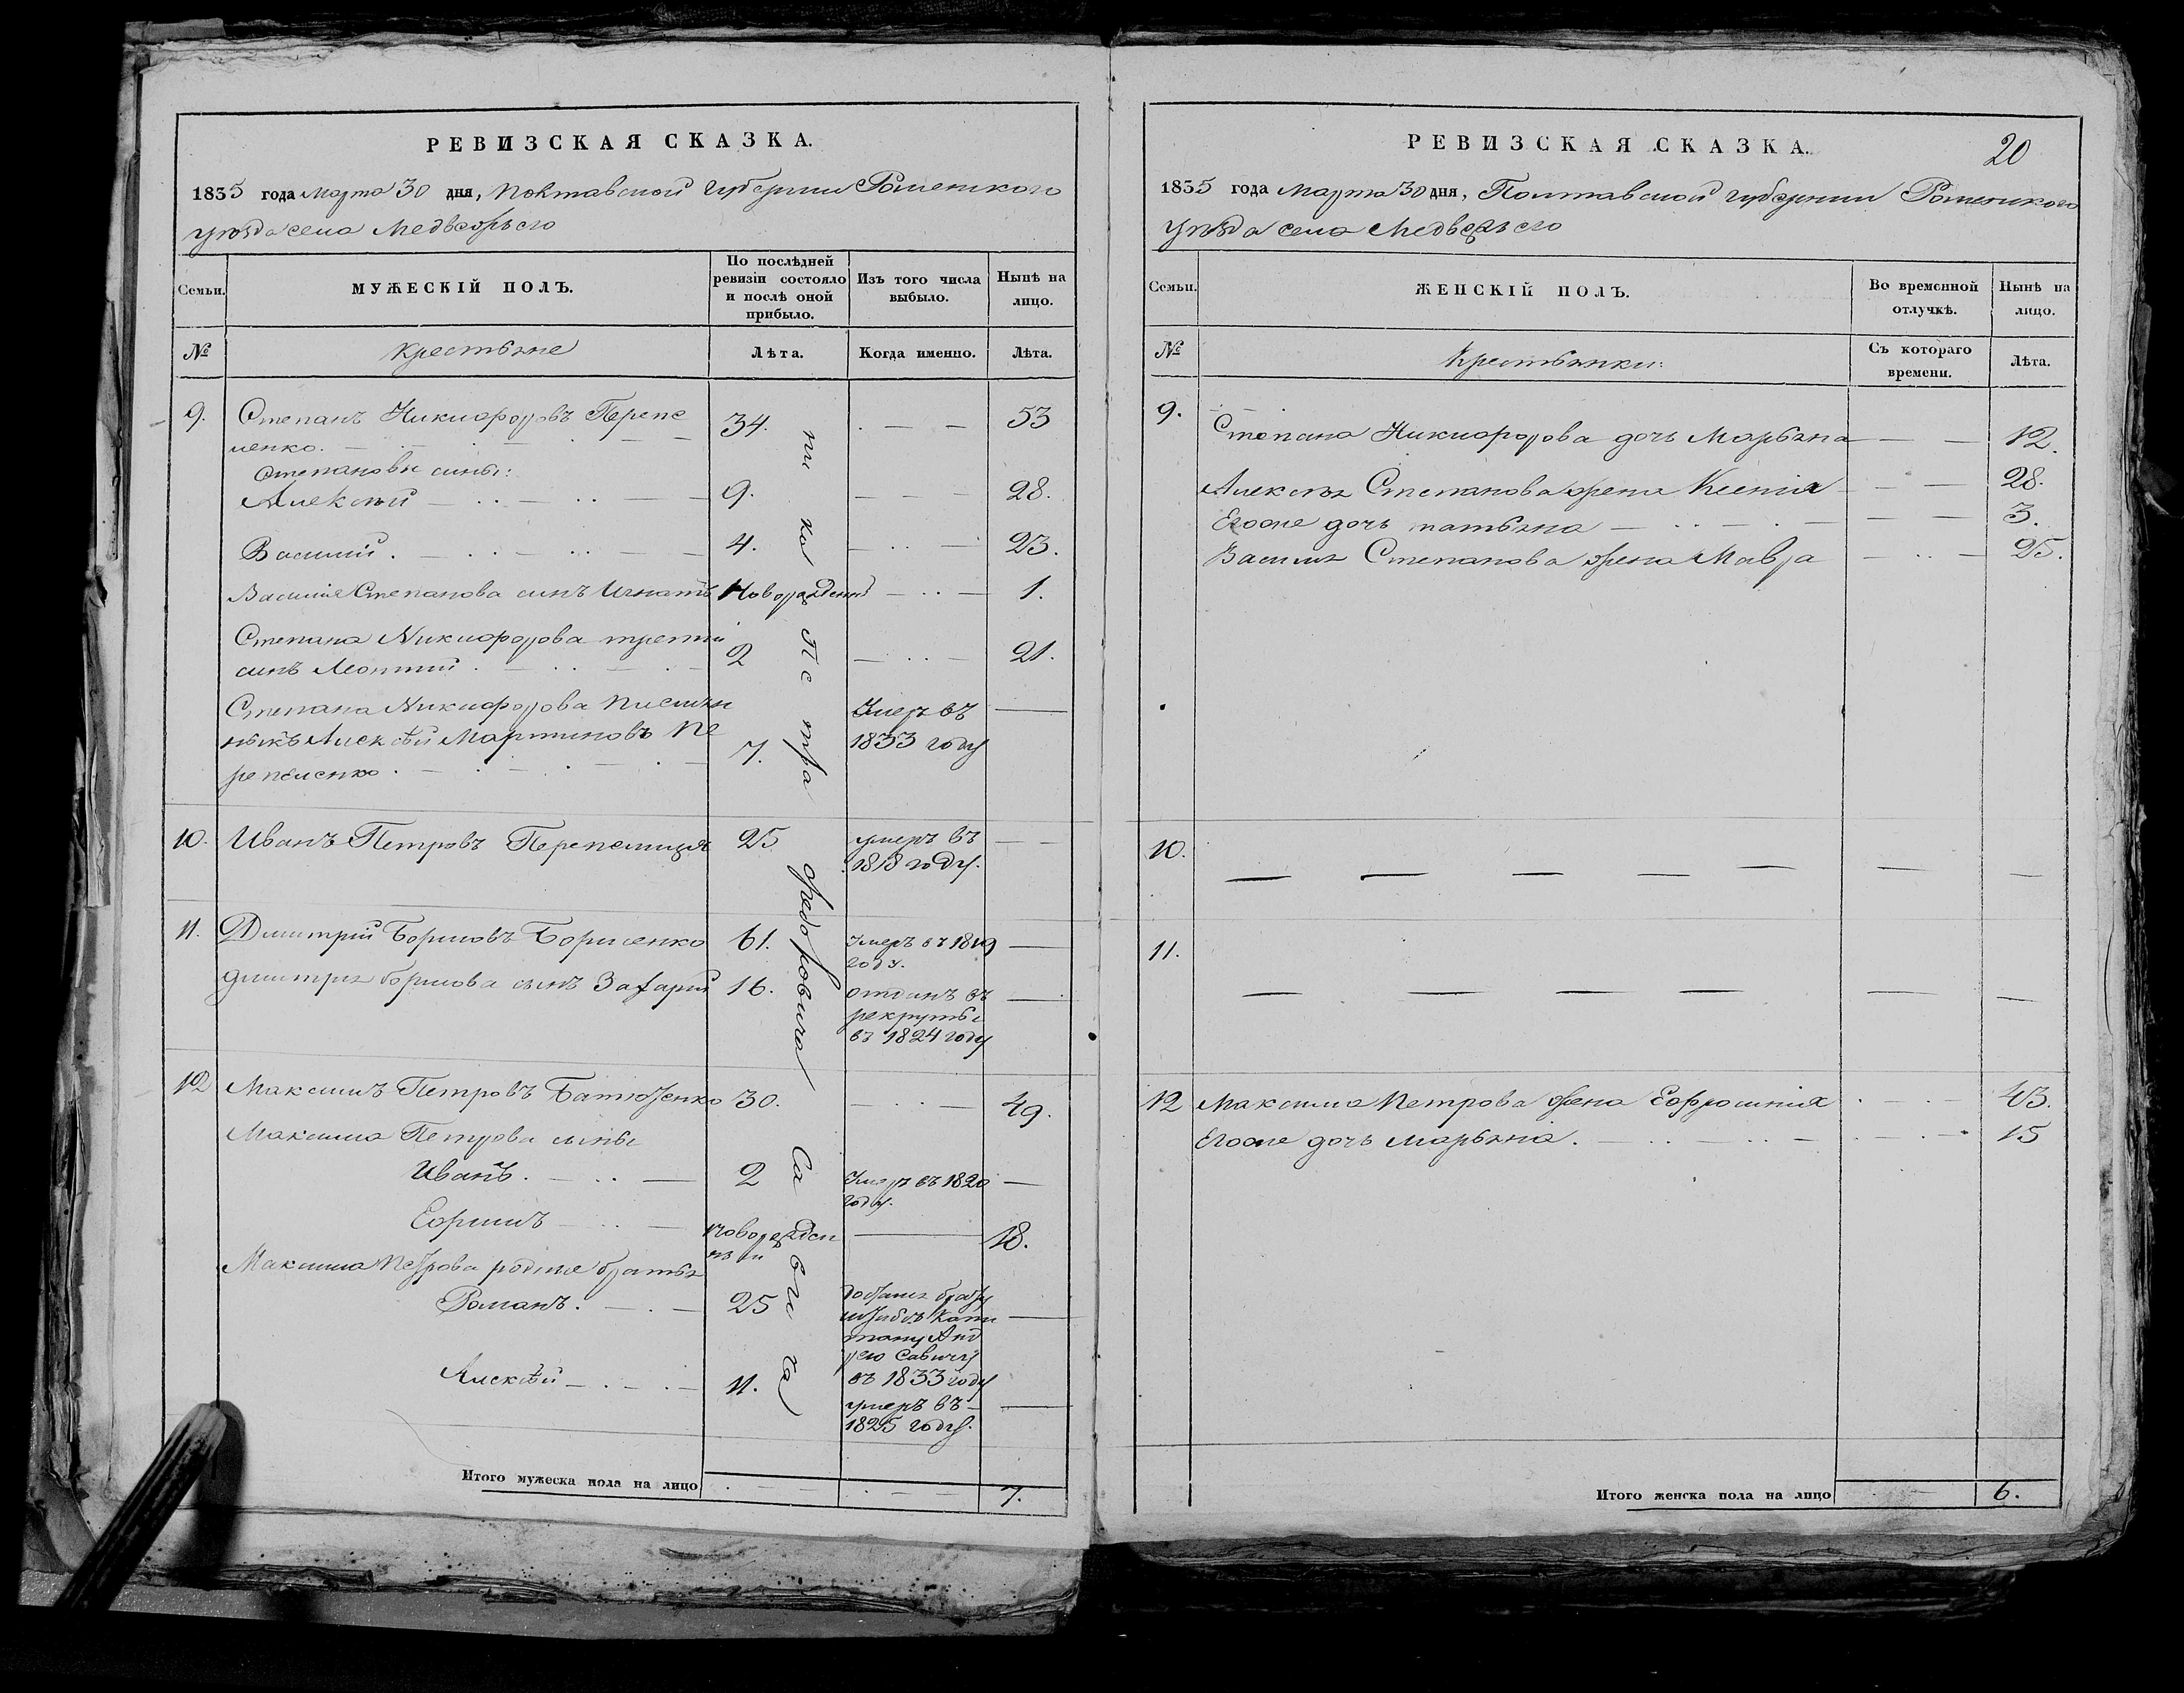 РЕВИЗСКАЯ СКАЗКА.
1835 года Марта 30 дня, Полтавской губернии Роменского
уезда села Медвежьего
Семьи.
МУЖЕСКІЙ ПОЛЪ.
По послѣдней
ревизіи состояло
и послѣ оной
прибыло.
Изъ того числа
выбыло.
Нынѣ на
лицо.
№
Крестьяне
Лѣта.
Когда именно.
Лѣта.
9. Степанъ Никифоровъ Перепе 34. 53
ленко.
Степановы сины:
Алексѣй 9. 28.
Василій. 4. 23.
Василія Степанова синъ Игнатъ Новорожденній 1.
Степана Никифорова третій
синъ Леонтій. 2 21.
Степана Никифорова племян Умеръ въ
никъ Алексѣй Мартиновъ Пе 7. 1833 году
репеленко.
10. Иванъ Петровъ Перепелиця 25 умеръ въ
1818 году.
11. Дмитрій Борисовъ Борисенко 61. Умеръ въ 1819
году.
Дмитрия Борисова сынъ Захарій 16. отданъ въ
рекруты
въ 1824 году
12 Максимъ Петровъ Батюженко 30. 49.
Максима Петрова сыны
Иванъ. 2 Умеръ въ 1820
году.
Ефимъ Новорожден 18.
ный
Максима Петрова родние братья
Романъ. 25 брату
штабсъ Капи
тану Анд
рею Савичу
въ 1833 году
Алексѣй 11. умеръ въ
1825 году.
Петра Федоровича Савича
Итого мужеска пола на лицо 7.
РЕВИЗСКАЯ СКАЗКА.
20
1835 года Марта 30 дня, Полтавской губернии Роменского
уезда села Медвежьего
Семьи.
ЖЕНСКІЙ ПОЛЪ.
Во временной
отлучкѣ.
Нынѣ на
лицо.
№
Крестьянки:
Съ котораго
времени.
Лѣта.
9.
Степана Никифорова дочь Марьяна 12.
Алексѣя Степанова жена Ксенія 28.
Егоже дочь Татьяна 3.
Василя Степанова жена Мавра 25.
10.
11.
12 Максима Петрова жена Ефросинія 43.
Егоже дочь Марьяна. 15
Итого женска пола на лицо 6.